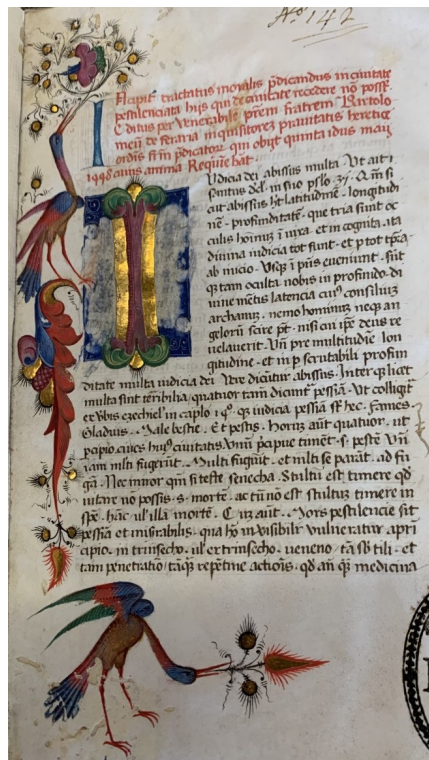 Nº 142
Incipit tractatus moralis p̄dicandus in ciuitate
pestilenciata hijs qui de ciuitate recedere nō possūt
Editus per Venerabilē p̄rem fratrem Bartolo
meū de feraria inquisitorē prauitatis heretice
ordīs frm̄ p̄dicatorū qui obijt quinta idus maij
1448 cuius anima Requiē hāt
Iudicia dei abissus multa. Vt ait
dd. in suo pslo
cut abissus ht latitudinē. longitudi
nē. profunditatē. que tria sunt oc
culta hominū
diuina iudicia tot sunt. et p tot tpa
ab inicio. Vsqꝫ ī pn̄s eueniunt. sūt
qꝫ tam oculta nobis in profundo di
uine mentis latencia cuiꝰ consiliuꝫ
archanuꝫ. nemo hominuꝫ neqꝫ an
gelorū scire pōt. nisi cui ip̄e deus re
uelauerit. Vn̄ pre multitudīe lon
gitudine. et inp scrutabili profun
ditate multa iudicia dei Vere dicūtur abissus. Inter q̄ licet
multa sint terribilia quatuor tam̄ dicunt᷑ pessīa. Vt colligit᷑
ex Vbis ezechiel in caplo 14º. q̄ iudicia pessīa sūt hec. fames.
Gladius. Male bestie. Et pestis. Horum aūt quatuor. ut
p̄cipio. ciues huiꝰ ciuitatis Vnū p̄cipue timēt. s. pestē Vn̄
iam mlti fugerūt. Multi fugiūt. et mlti se parāt. ad fu
gā. Nec miror qui si teste senecha. Stultū est timere qd
uitare nō possis. s. mortē. ac tn̄ nō est stultuꝫ timere in
spē. hāc. ul' illā mortē. Mors pestilencie sit
pessīa et misrabilis. qua hō inuisibilr̄ vulneratur a pri
cipio. intrinsecho. ul' extrinsecho. ueneno. tā sb tili. et
tam penetratiuo. tāqꝫ repētine actiōis. qd medicina